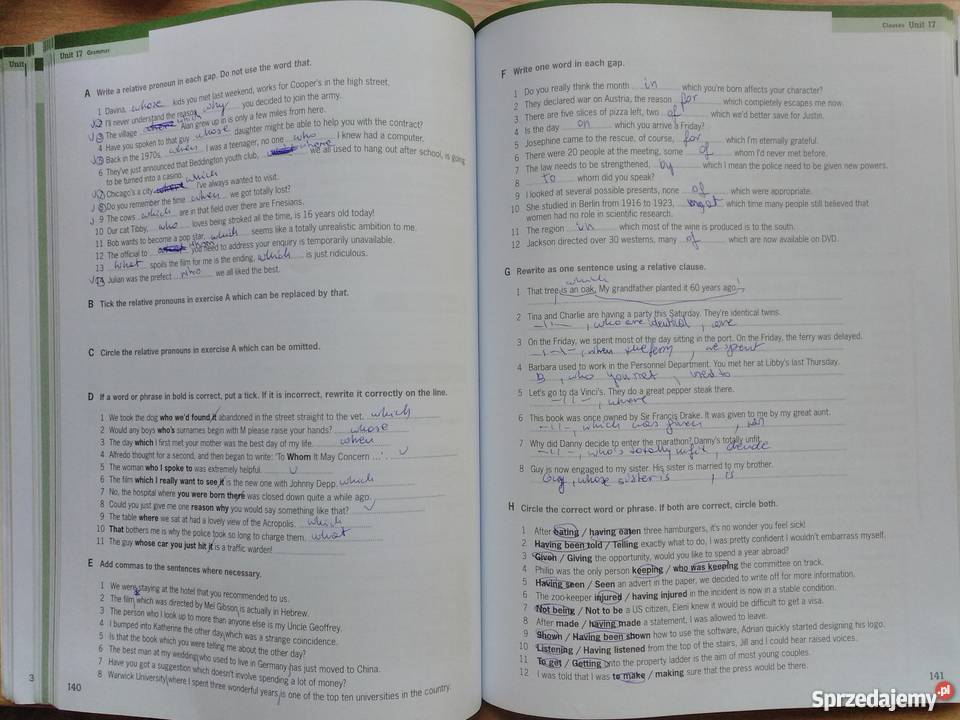 Unit
Unit 17 Grammar
A Write a relative pronoun in each gap. Do not use the word that.
1 Davina, whose kids you met last weekend, works for Cooper's in the high street.
2 I'll never understand the reason why you decided to join the army.
3 The village which Alan grew up in is only a few miles from here.
4 Have you spoken to that guy whose daughter might be able to help you with the contract?
5 Back in the 1970s, when I was a teenager, no one who I knew had a computer.
6 They've just announced that Beddington youth club, where we all used to hang out after school, is going
to be turned into a casino.
7 Chicago's a city which I've always wanted to visit.
8 Do you remember the time when we got totally lost?
9 The cows which are in that field over there are Friesians.
10 Our cat Tibby, who loves being stroked all the time, is 16 years old today!
11 Bob wants to become a pop star, which seems like a totally unrealistic ambition to me.
12 The official to whom you need to address your enquiry is temporarily unavailable.
13 What spoils the film for me is the ending, which is just ridiculous.
14 Julian was the prefect who we all liked the best.
B Tick the relative pronouns in exercise A which can be replaced by that.
C Circle the relative pronouns in exercise A which can be omitted.
D If a word or phrase in bold is correct, put a tick. If it is incorrect, rewrite it correctly on the line.
1 We took the dog who we'd found it abandoned in the street straight to the vet. which
2 Would any boys who's surnames begin with M please raise your hands? whose
3 The day which I first met your mother was the best day of my life. when
4 Alfredo thought for a second, and then began to write: 'To Whom It May Concern ...'.
5 The woman who I spoke to was extremely helpful.
6 The film which I really want to see it is the new one with Johnny Depp. which
7 No, the hospital where you were born there was closed down quite a while ago.
8 Could you just give me one reason why you would say something like that?
9 The table where we sat at had a lovely view of the Acropolis. which
10 That bothers me is why the police took so long to charge them. what
11 The guy whose car you just hit it is a traffic warden!
E Add commas to the sentences where necessary.
1 We were staying at the hotel that you recommended to us.
2 The film, which was directed by Mel Gibson, is actually in Hebrew.
3 The person who I look up to more than anyone else is my Uncle Geoffrey.
4 I bumped into Katherine the other day, which was a strange coincidence.
5 Is that the book which you were telling me about the other day?
6 The best man at my wedding, who used to live in Germany, has just moved to China.
7 Have you got a suggestion which doesn't involve spending a lot of money?
8 Warwick University, where I spent three wonderful years, is one of the top ten universities in the country.
3
140
Clauses Unit 17
F Write one word in each gap.
1 Do you really think the month in which you're born affects your character?
2 They declared war on Austria, the reason for which completely escapes me now.
3 There are five slices of pizza left, two of which we'd better save for Justin.
4 Is the day on which you arrive a Friday?
5 Josephine came to the rescue, of course, for which I'm eternally grateful.
6 There were 20 people at the meeting, some of whom I'd never met before.
7 The law needs to be strengthened, by which I mean the police need to be given new powers.
8 to whom did you speak?
9 I looked at several possible presents, none of which were appropriate.
10 She studied in Berlin from 1916 to 1923, which time many people still believed that
women had no role in scientific research.
11 The region in which most of the wine is produced is to the south.
12 Jackson directed over 30 westerns, many of which are now available on DVD.
G Rewrite as one sentence using a relative clause.
which
1 That tree is an oak. My grandfather planted it 60 years ago.
2 Tina and Charlie are having a party this Saturday. They're identical twins.
, who are identical, are
3 On the Friday, we spent most of the day sitting in the port. On the Friday, the ferry was delayed.
, when the ferry, we spent
4 Barbara used to work in the Personnel Department. You met her at Libby's last Thursday.
B, who you met, used to
5 Let's go to da Vinci's. They do a great pepper steak there.
, where
6 This book was once owned by Sir Francis Drake. It was given to me by my great aunt.
, which was given,
7 Why did Danny decide to enter the marathon? Danny's totally unfit.
, who's totally unfit, decide
8 Guy is now engaged to my sister. His sister is married to my brother.
Guy, whose sister is, is
H Circle the correct word or phrase. If both are correct, circle both.
1 After eating / having eaten three hamburgers, it's no wonder you feel sick!
2 Having been told / Telling exactly what to do, I was pretty confident I wouldn't embarrass myself.
3 Given / Giving the opportunity, would you like to spend a year abroad?
4 Philip was the only person keeping / who was keeping the committee on track.
5 Having seen / Seen an advert in the paper, we decided to write off for more information.
6 The zoo-keeper injured / having injured in the incident is now in a stable condition.
7 Not being / Not to be a US citizen, Eleni knew it would be difficult to get a visa.
8 After made / having made a statement, I was allowed to leave.
9 Shown / Having been shown how to use the software, Adrian quickly started designing his logo.
10 Listening / Having listened from the top of the stairs, Jill and I could hear raised voices.
11 To get / Getting onto the property ladder is the aim of most young couples.
12 I was told that I was to make / making sure that the press would be there.
141
Sprzedajemy.pl